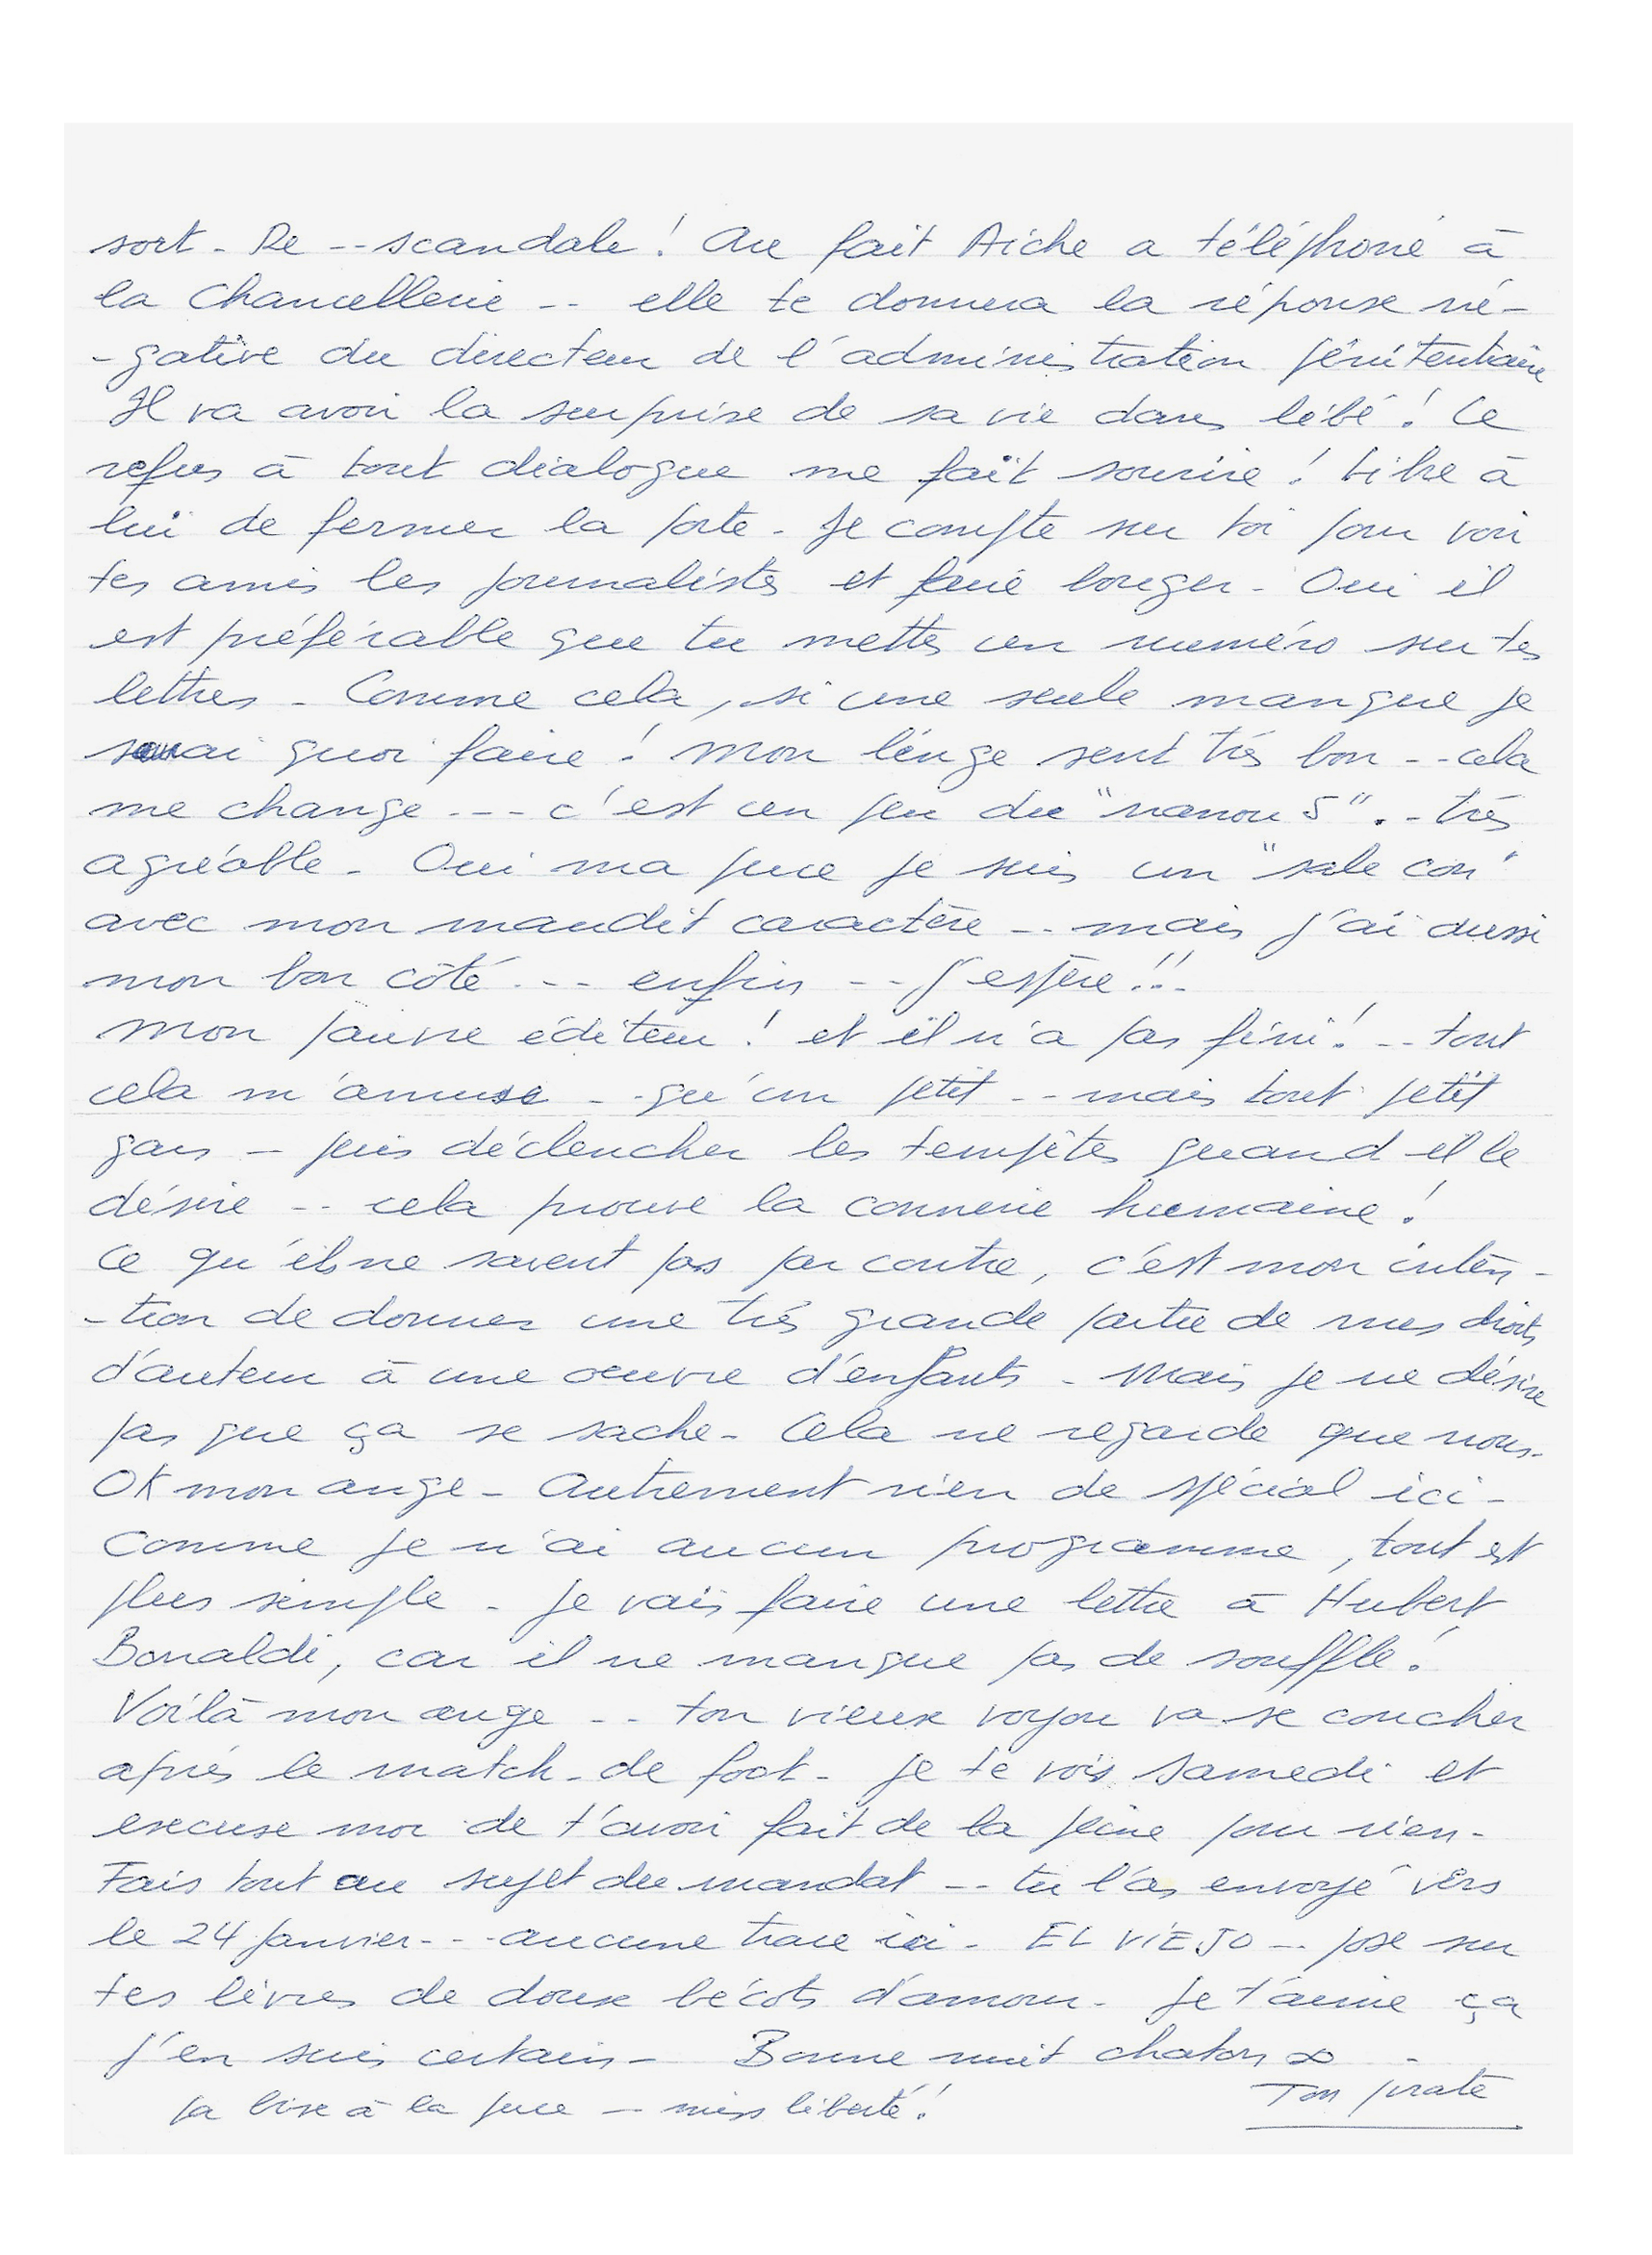 sort - Re -- scandale ! Au fait Aiche a téléphoné à
la Chancellerie -- elle te donnera la réponse né-
-gative du directeur de l'administration pénitentiaire
Il va avoir la surprise de sa vie dans bébé ! Ce
refus à tout dialogue me fait sourire ! Libre à
lui de fermer la porte - Je compte sur toi pour voir
tes amis les journalistes et faire bouger - Oui il
est préférable que tu mettes un numéro sur tes
lettres - Comme cela, si une seule manque je
saurai quoi faire ! Mon linge sent très bon -- cela
me change --- c'est un peu du "nanou 5" -- très
agréable - Oui ma puce je suis un "sale con"
avec mon maudit caractère -- mais j'ai aussi
mon bon côté --- enfin -- j'espère !!-
Mon pauvre éditeur ! et il n'a pas fini ! -- tout
cela m'amuse -- qu'un petit -- mais tout petit
gars - puis déclencher les tempêtes quand il le
désire -- cela prouve la connerie humaine !
Ce qu'ils ne savent pas par contre, c'est mon inten-
-tion de donner une très grande partie de mes droits
d'auteur à une oeuvre d'enfants - Mais je ne désire
pas que ça se sache - Cela ne regarde que nous -
OK mon ange - Autrement rien de spécial ici -
Comme je n'ai aucun programme, tout est
plus simple - Je vais faire une lettre à Hubert
Bonaldi, car il ne manque pas de souffle !
Voilà mon ange -- ton vieux voyou va se coucher
après le match - de foot - Je te vois samedi et
excuse moi de t'avoir fait de la peine pour rien -
Fais tout au sujet du mandat -- tu l'as envoyé vers
le 24 janvier --- aucune trace ici - EL VIEJO -- pose sur
tes lèvres de doux bécots d'amour - Je t'aime ça
j'en suis certain - Bonne nuit chaton ∞ -
Ton pirate
la bise à la puce - miss liberté !